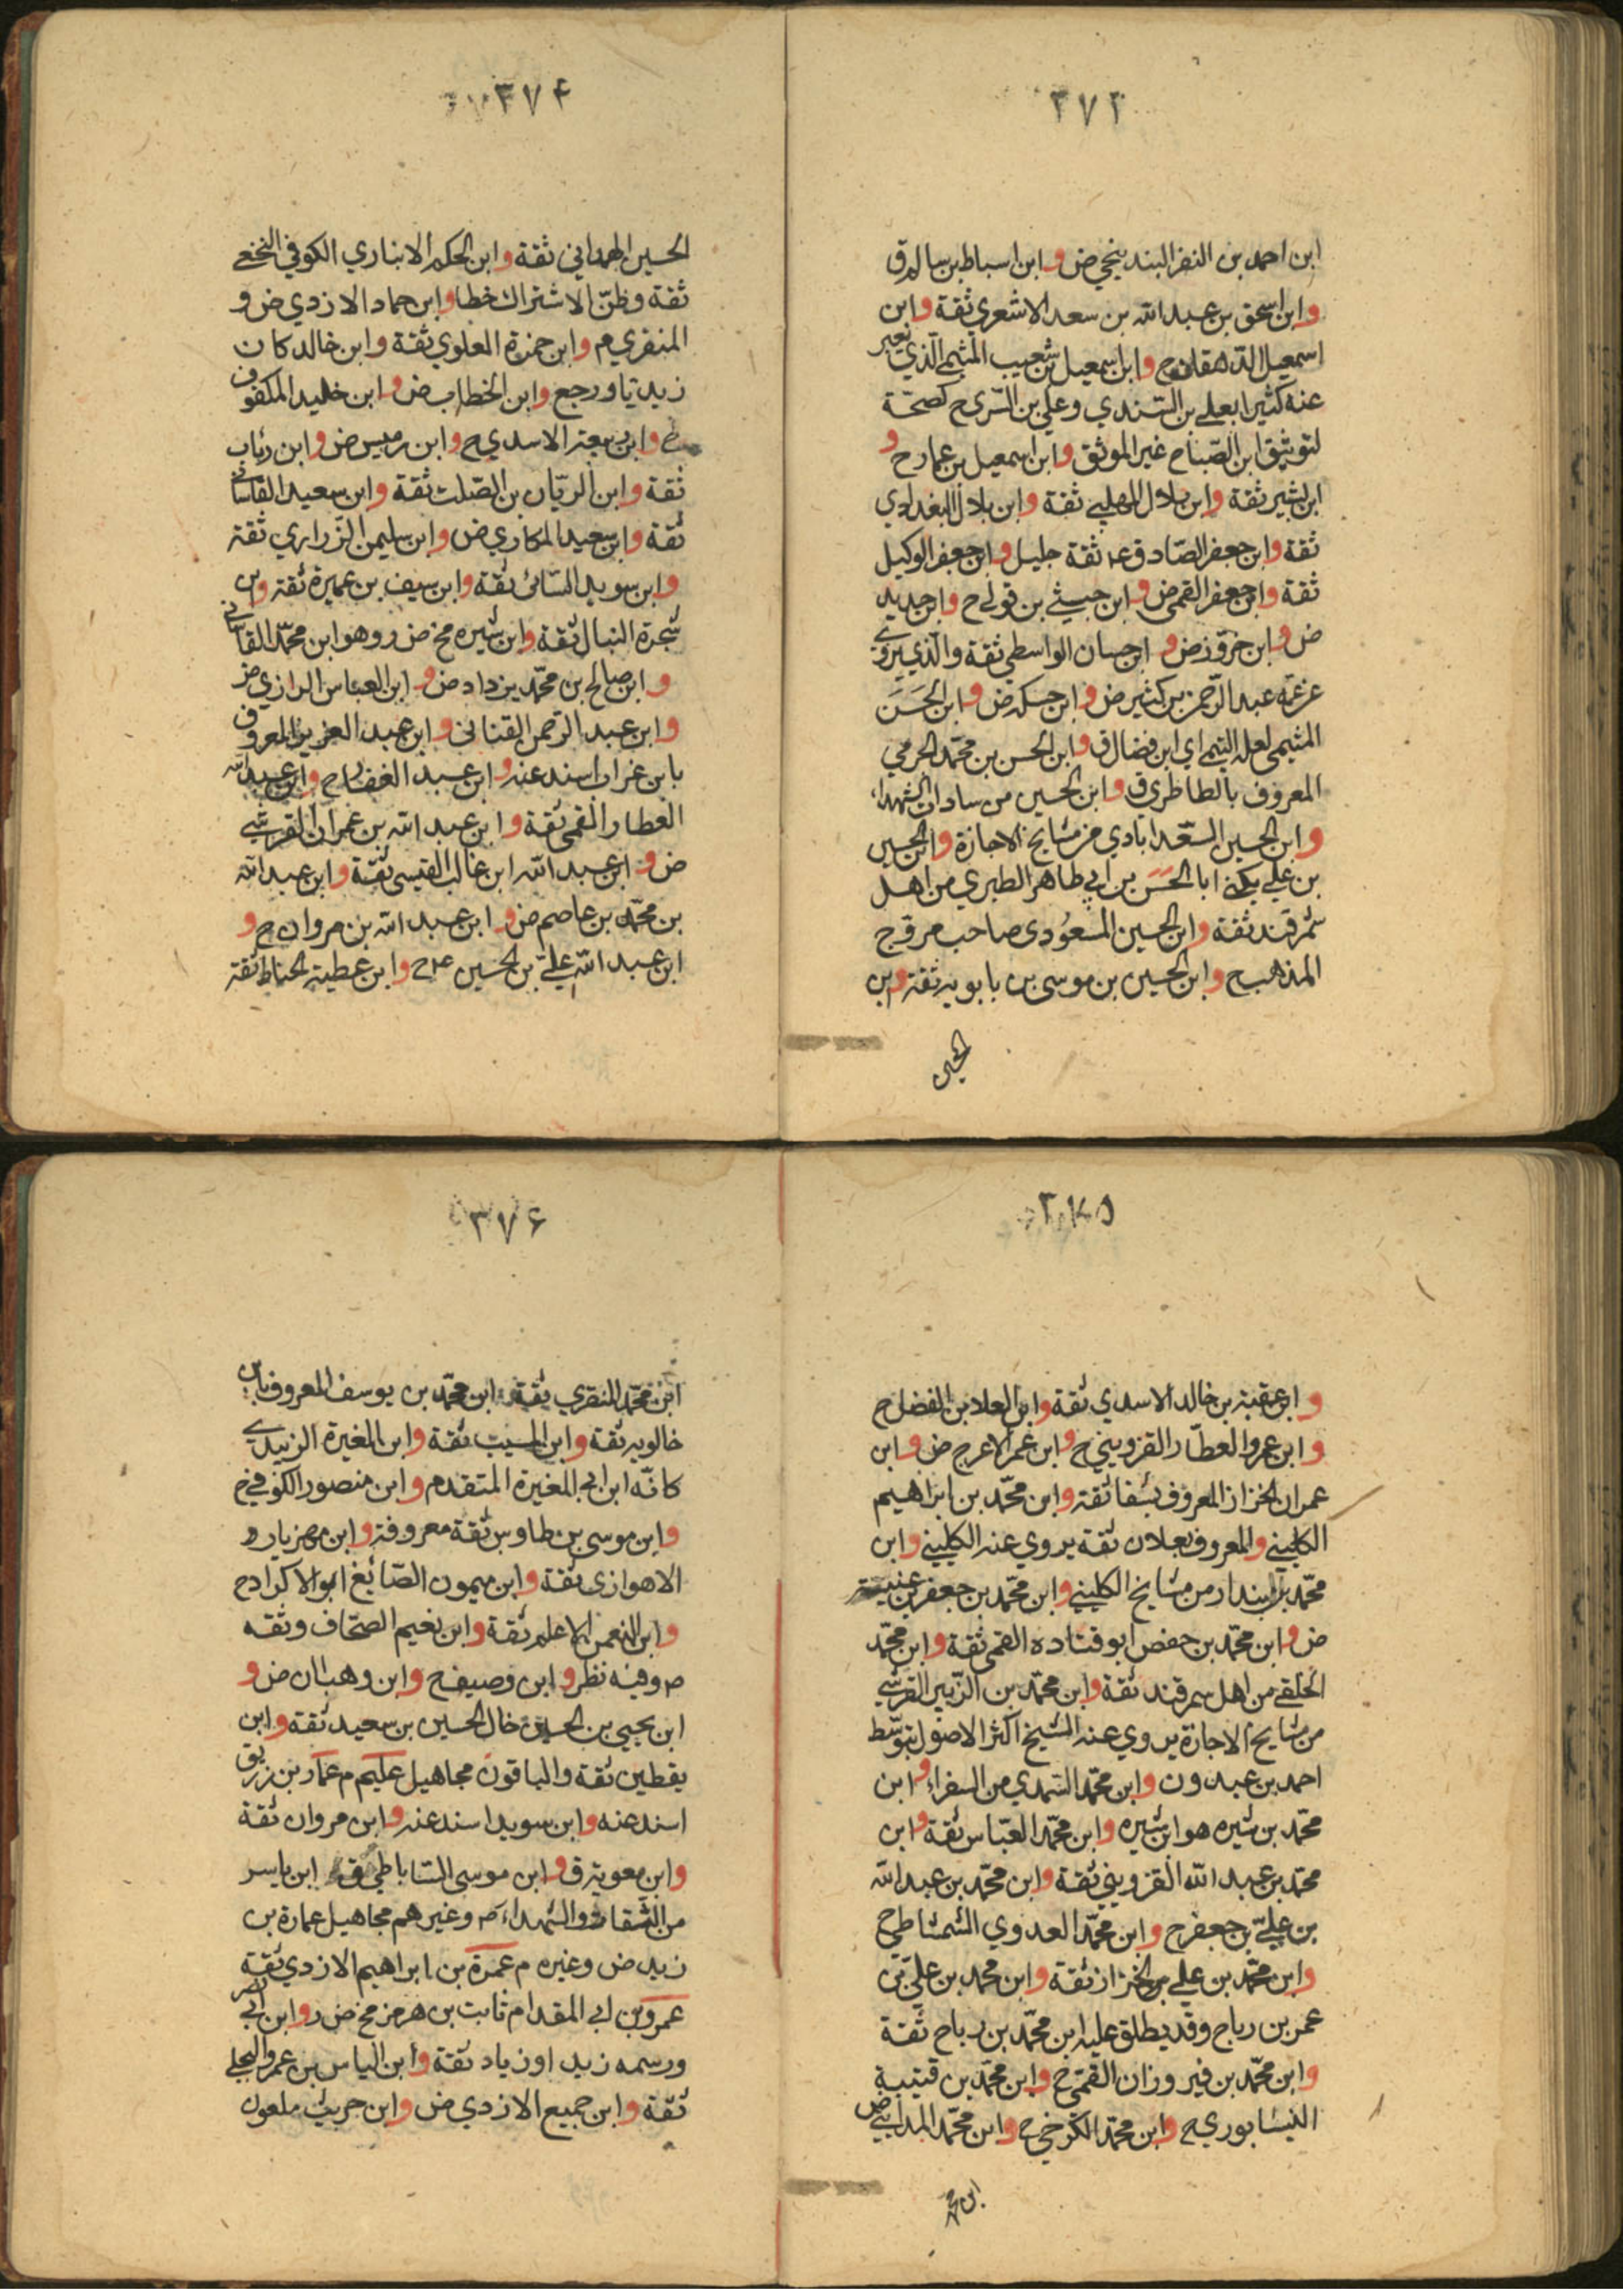 ٣٧٣
ابن احمد بن النضر البندنيجي ض و ابن اسباط بن سالم ق
و ابن اسحق بن عبد الله بن سعد الاشعري ثقة و ابن
اسمعيل الدهقان ح و ابن اسمعيل بن شعيب الميثمي الذي يعبر
عنه كثيرا بعلي بن السندي و علي بن السري ح كصحة
لتوثيق ابن الصباح غير الموثق و ابن اسمعيل بن عمار ح و
ابن بشير ثقة و ابن بلال المهلبي ثقة و ابن بلال البغدادي
ثقة و ابن جعفر الصادق ع ثقة جليل و ابن جعفر الوكيل
ثقة و ابن جعفر القمي ض و ابن حبشي بن قوني ح و ابن حديد
ض و ابن خزور ض و ابن حسان الواسطي ثقة و الذي يروي
عن عمه عبد الرحمن بن كثير ض و ابن حسكه ض و ابن الحسن
الميثمي لعله التيمي اي ابن فضال ق و ابن الحسن بن محمد الجرمي
المعروف بالطاطري ق و ابن الحسين من سادات الشهداء
و ابن الحسين السعدابادي من مشايخ الاجازة و ابن الحسين
بن علي يكنى ابا الحسن بن ابي طاهر الطبري من اهل
سمرقند ثقة و ابن الحسين المسعودي صاحب مروج
المذهب ح و ابن الحسين بن موسى بن بابويه ثقة و ابن
الحسين
٣٧٤
الحسين الهمداني ثقة و ابن الحكم الانباري الكوفي النخعي
ثقة و ظن الاشتراك خطا و ابن حماد الازدي ض و
المنقري م و ابن حمزة العلوي ثقة و ابن خالد كان
زيديا و رجع و ابن الخطاب ض و ابن خليد المكفوف
و ابن ربيعة الاسدي ح و ابن رميس ض و ابن رئاب
ثقة و ابن الريان بن الصلت ثقة و ابن سعيد القاساني
ثقة و ابن سعيد المكاري ض و ابن سليمن الزراري ثقة
و ابن سويد السائي ثقة و ابن سيف بن عميرة ثقة و ابن
شجرة النبال ثقة و ابن شيره مخ ض ر و هو ابن محمد القاساني
و ابن صالح بن محمد يزداد ض و ابن العباس الرازي ض
و ابن عبد الرحمن القناني و ابن عبد العزيز المعروف
بابن غراب اسند عنه و ابن عبد الغفار ح و ابن عبيد الله
العطار القمي ثقة و ابن عبد الله بن عمران القرشي
ض و ابن عبد الله ابن غالب القيسي ثقة و ابن عبد الله
بن محمد بن عاصم ض و ابن عبد الله بن مروان ح و
ابن عبد الله علي بن الحسين ع ح و ابن عطية الحناط ثقة
٣٧٥
و ابن عقبة بن خالد الاسدي ثقة و ابن العلا بن الفضل ح
و ابن عمرو العطار القزويني ح و ابن عمر الاعرج ض و ابن
عمران الخزاز المعروف بشفا ثقة و ابن محمد بن ابراهيم
الكليني و المعروف بعلان ثقة يروي عنه الكليني و ابن
محمد بن بندار من مشايخ الكليني و ابن محمد بن جعفر بن عنبسة
ض و ابن محمد بن حفص ابو قتاده القمي ثقة و ابن محمد
الخلقي من اهل سمرقند ثقة و ابن محمد بن الزبير القرشي
من مشايخ الاجازة يروي عنه الشيخ اكثر الاصول بتوسط
احمد بن عبدون و ابن محمد السمري من السفراء و ابن
محمد بن شيره هو ابن شيره و ابن محمد العباس ثقة و ابن
محمد بن عبد الله القزويني ثقة و ابن محمد بن عبد الله
بن علي بن جعفر ح و ابن محمد العدوي الشمشاطي ح
و ابن محمد بن علي بن الخزاز ثقة و ابن محمد بن علي بن
عمر بن رباح و قد يطلق عليه ابن محمد بن رباح ثقة
و ابن محمد بن فيروزان القمي ح و ابن محمد بن قتيبة
النيشابوري ح و ابن محمد الكرخي ح و ابن محمد المدايني ض
ابن محمد
٣٧٦
ابن محمد المنقري ثقة ابن محمد بن يوسف المعروف بابن
خالويه ثقة و ابن المسيب ثقة و ابن المغيرة الزبيدي
كانه ابن ابي المغيرة المتقدم و ابن منصور الكوفي ح
و ابن موسى بن طاوس ثقة معروفة و ابن مهزيار و
الاهوازي ثقة و ابن ميمون الصائغ ابو الاكراد ح
و ابن النعمن الاعلم ثقة و ابن نعيم الصحاف وثقه
ص و فيه نظر و ابن وصيف ح و ابن وهبان ض و
ابن يحيى بن الحسين خال الحسين بن سعيد ثقة و ابن
يقطين ثقة و الباقون مجاهيل عليم م عمار بن زريق
اسند عنه و ابن سويد اسند عنه و ابن مروان ثقة
و ابن معوية ق و ابن موسى الساباطي ق ابن ياسر
من الثقات و الشهداء ص و غيرهم مجاهيل عمارة بن
زيد ض و غيره م عمرة بن ابراهيم الازدي ثقة
عمرو بن ابي المقدام ثابت بن هرمز مخ ض ر و ابن ابي نصر
و رسمه زيد او زياد ثقة و ابن الياس بن عمرو البجلي
ثقة و ابن جميع الازدي ض و ابن حريث ملعون